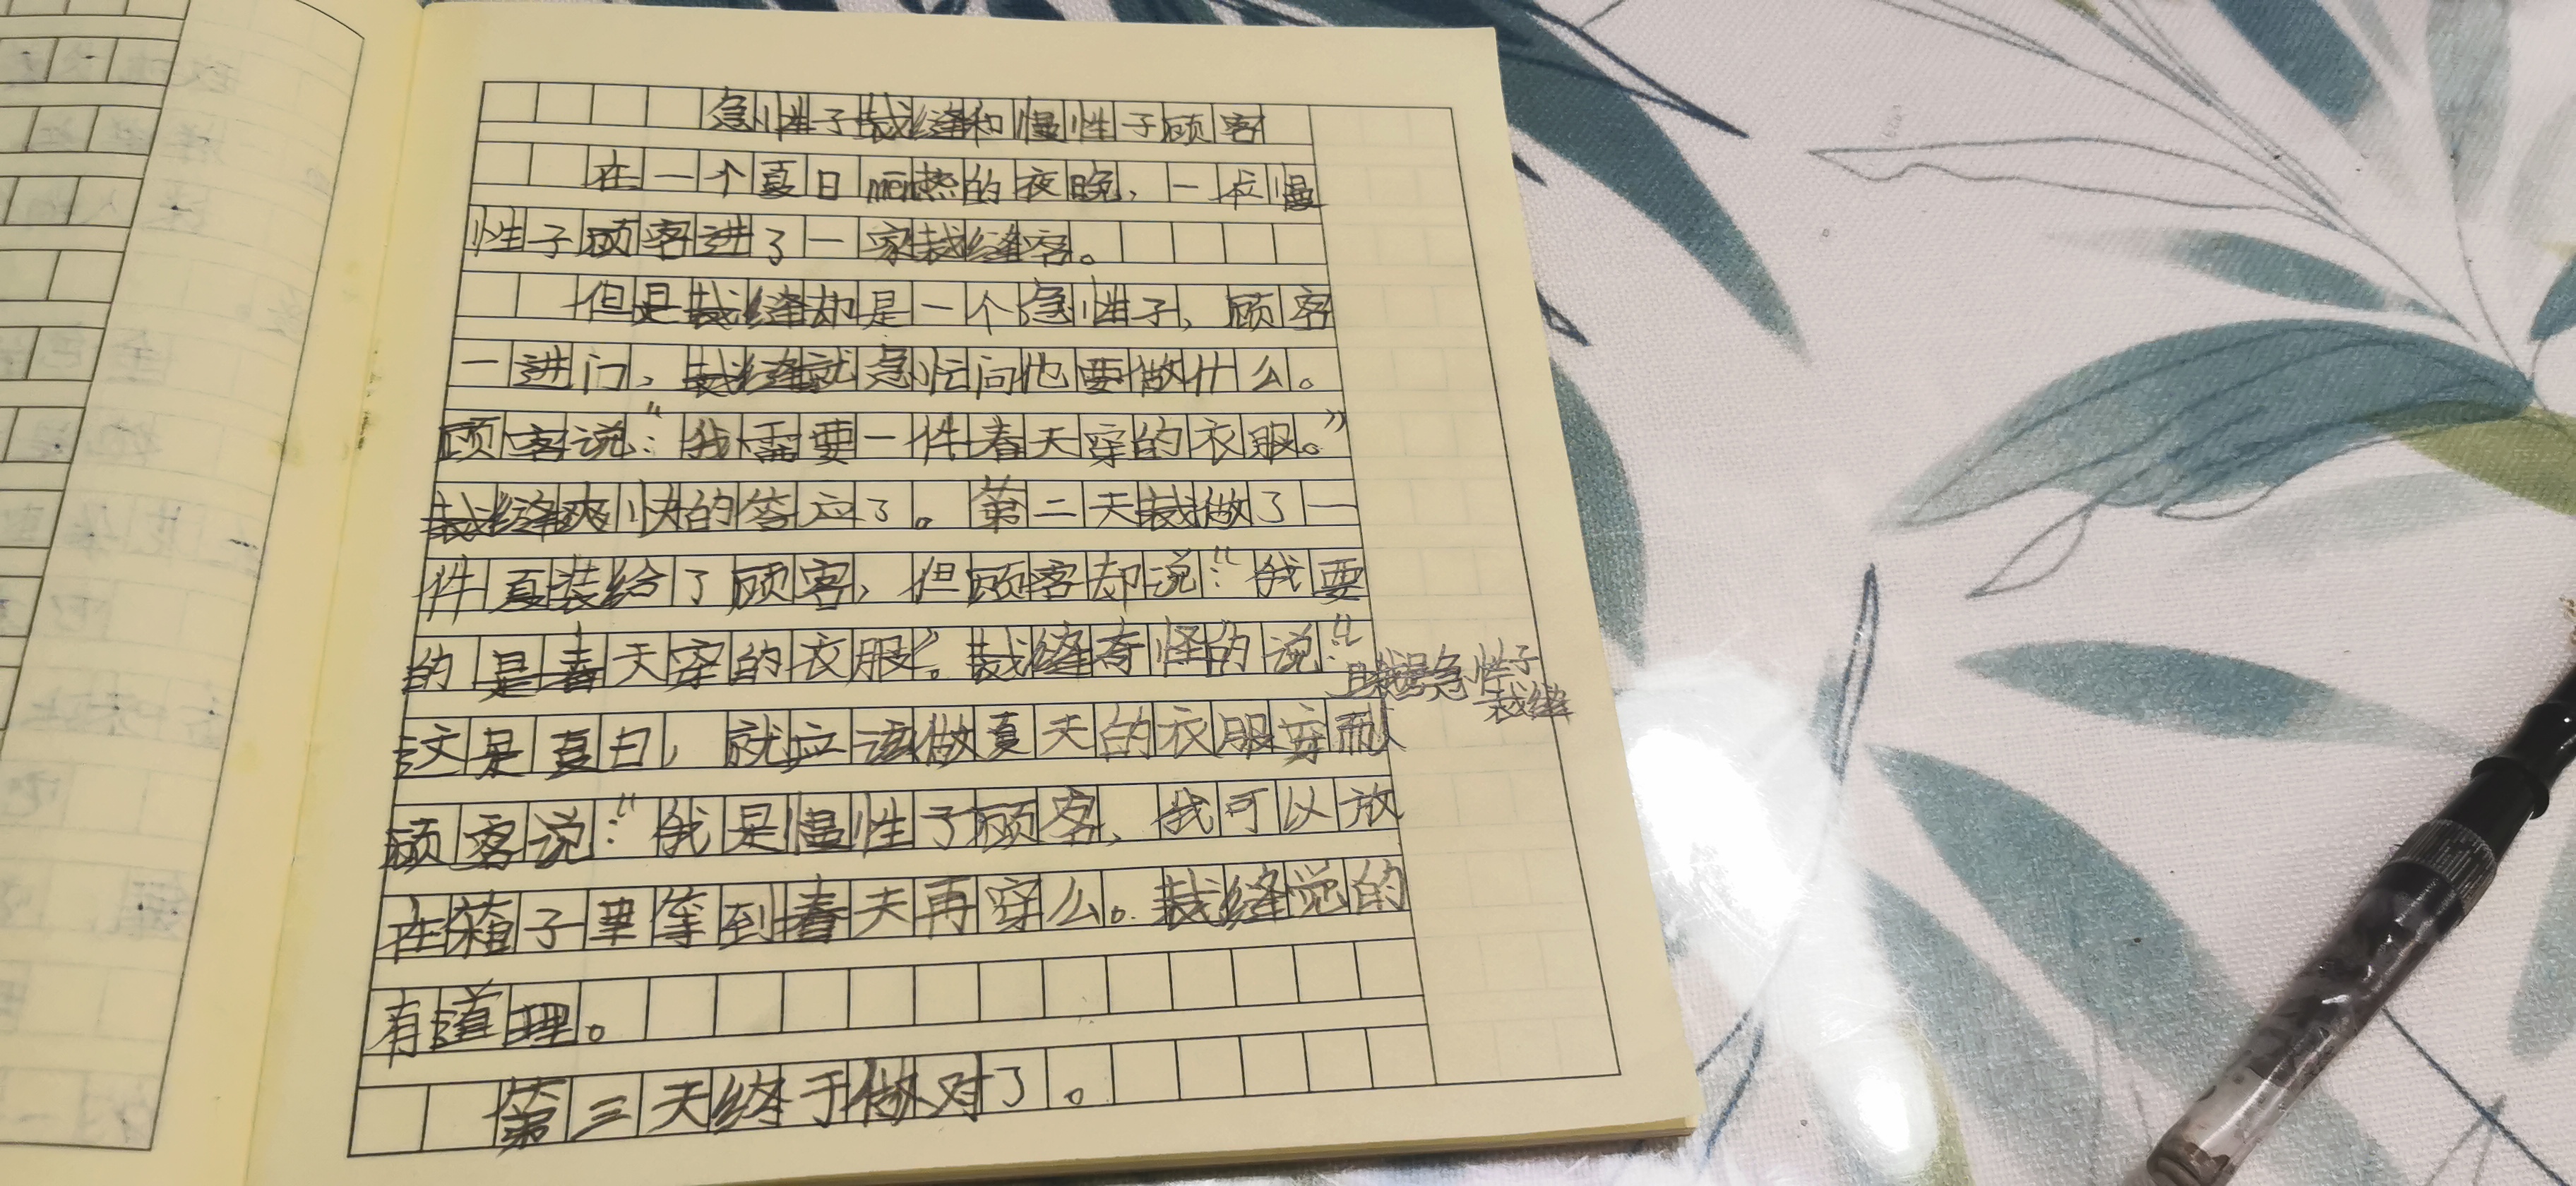 急性子裁缝和慢性子顾客
在一个夏日men热的夜晚，一位慢
性子顾客进了一家裁缝客。
但是裁缝却是一个急性子，顾客
一进门，裁缝就急忙问他要做什么。
顾客说：“我需要一件春天穿的衣服。”
裁缝爽快的答应了。第二天裁做了一
件夏装给了顾客，但顾客却说：“我要
的是春天穿的衣服”。裁缝奇怪的说：“
这是夏日，就应该做夏天的衣服穿而
且我是急性子
裁缝
顾客说：“我是慢性子顾客，我可以放
在箱子里等到春天再穿么。裁缝觉的
有道理。
第三天终于做对了。